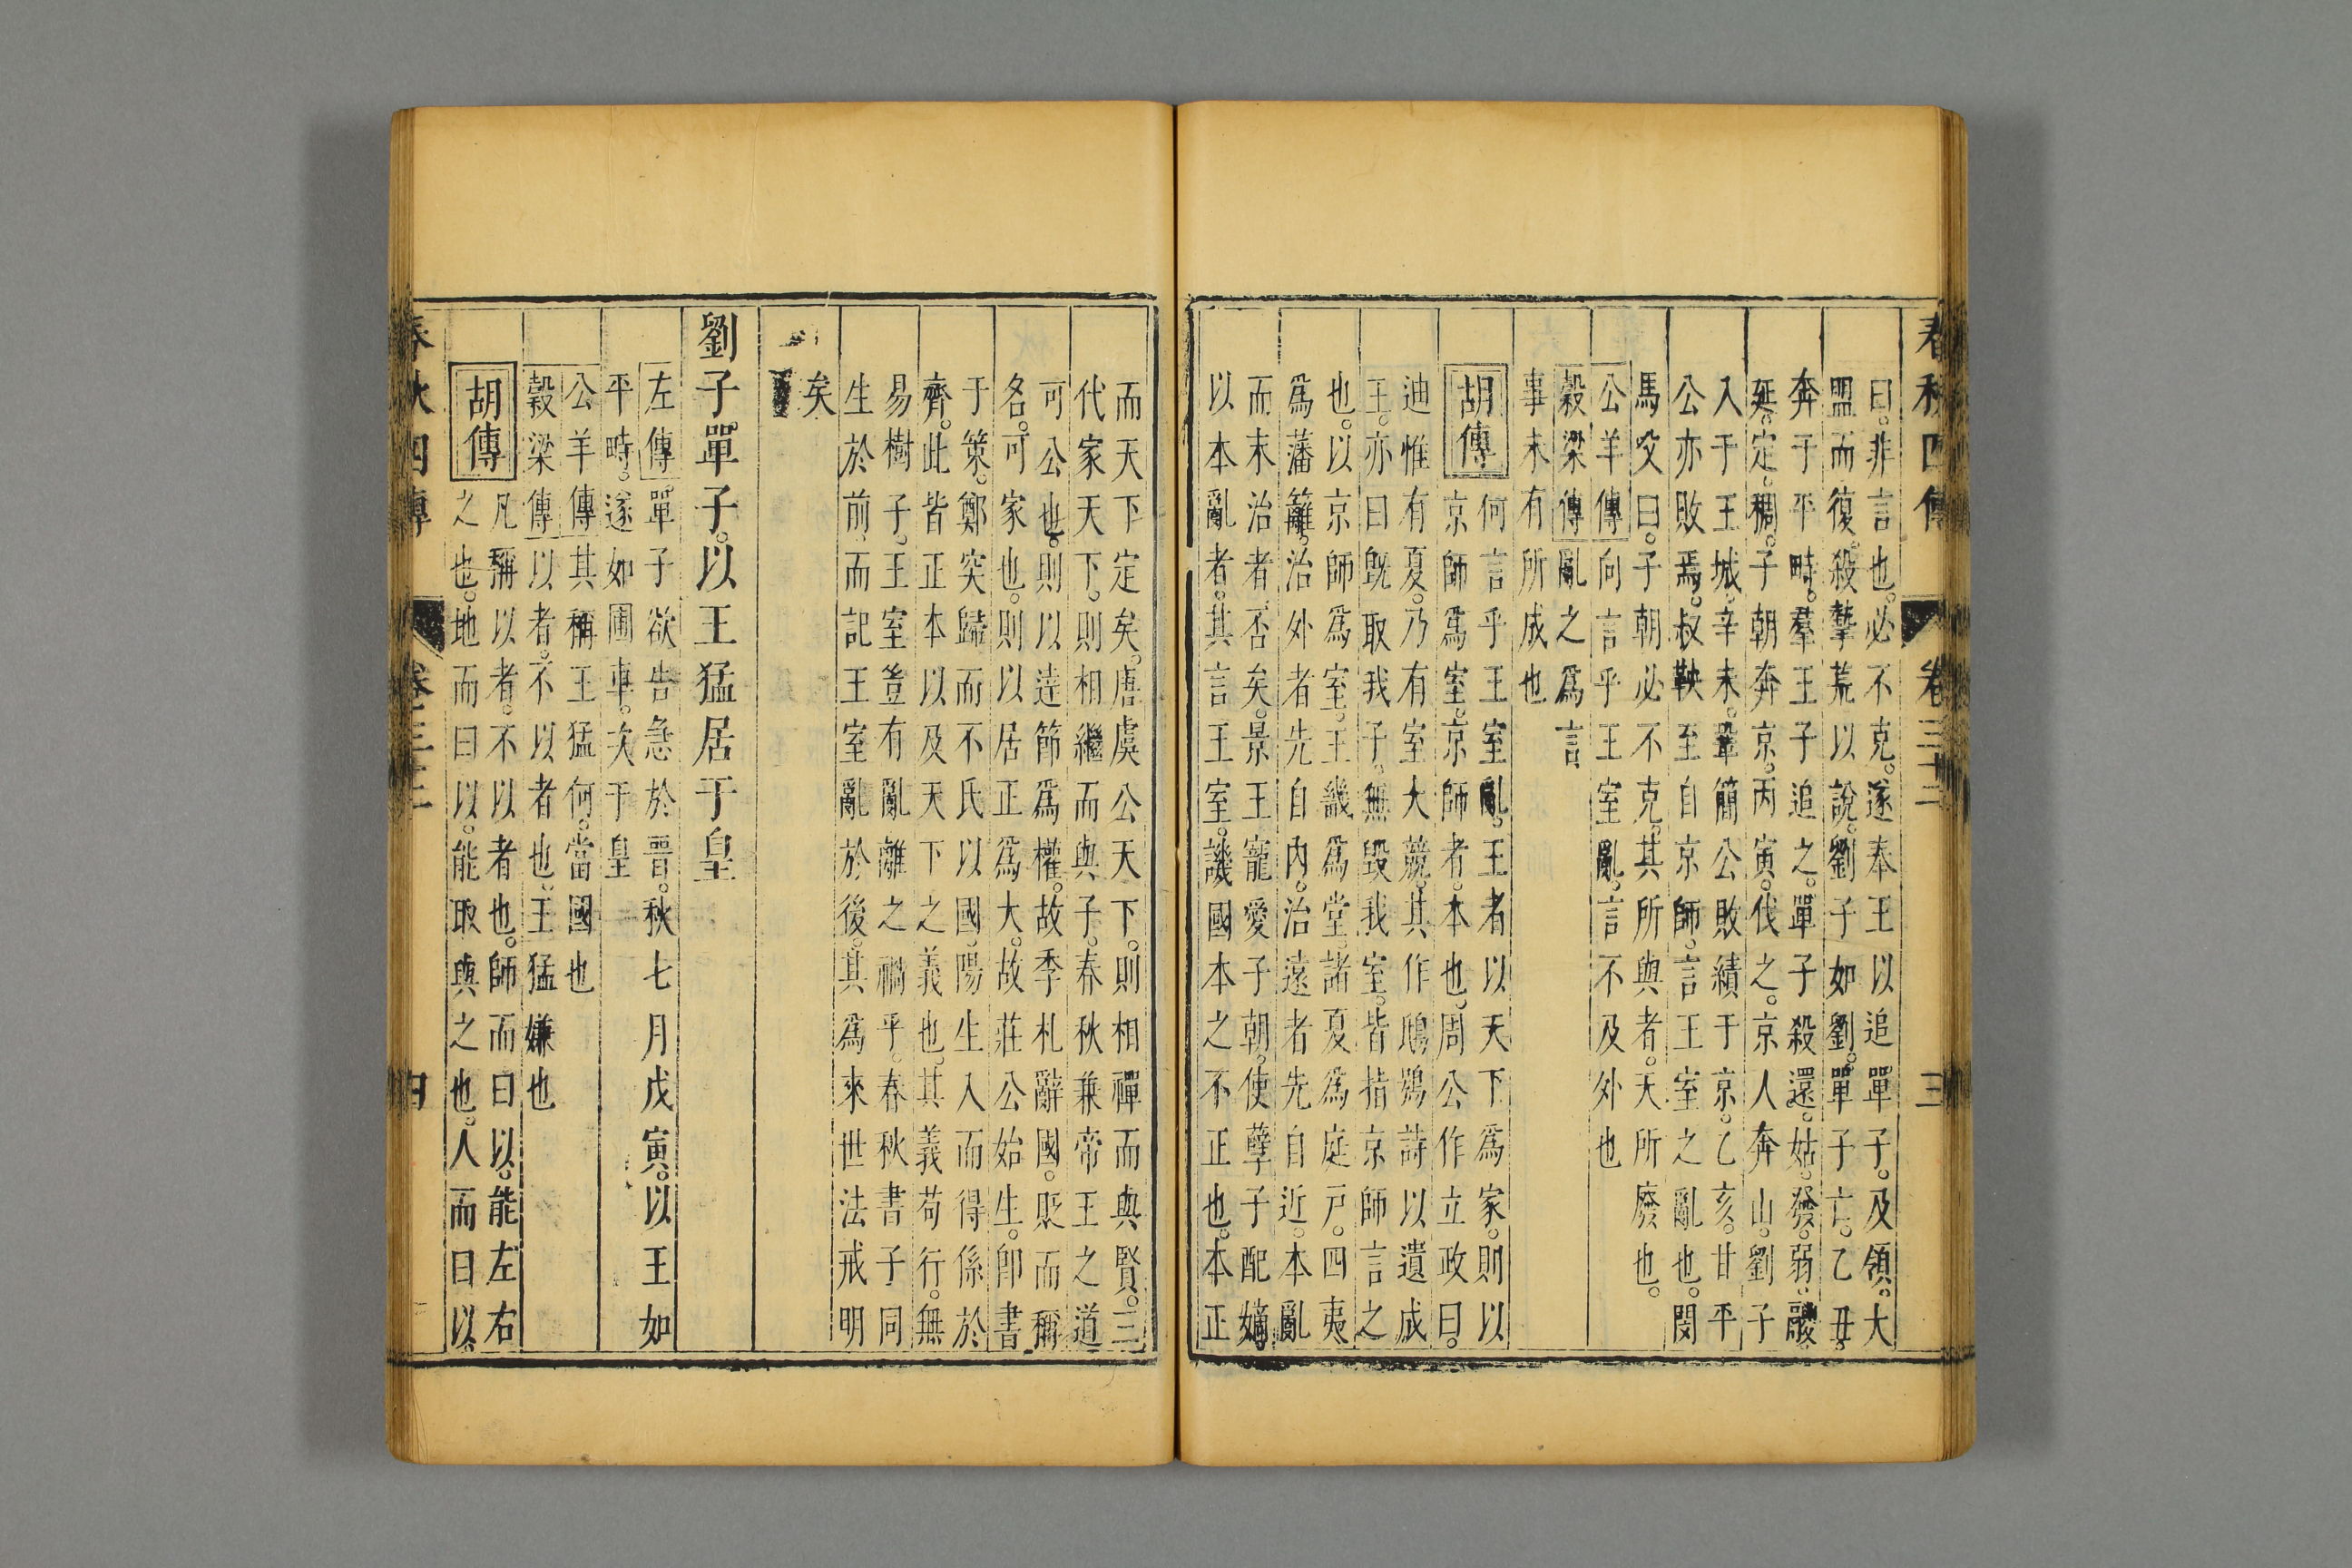 春秋四傳 卷三十二 三
曰。非言也。必不克。遂奉王以追單子。及領。大
盟而復。殺摯荒以說。劉子如劉。單子亡。乙丑。
奔于平畤。羣王子追之。單子殺還。姑。發。弱。鬷。
延。定。稠。子朝奔京。丙寅。伐之。京人奔山。劉子
入于王城。辛未。鞏簡公敗績于京。乙亥。甘平
公亦敗焉。叔鞅至自京師。言王室之亂也。閔
馬父曰。子朝必不克。其所與者。天所廢也。
公羊傳 何言乎王室亂。言不及外也
穀梁傳 亂之爲言
事未有所成也
胡傳 何言乎王室亂。王者以天下爲家。則以
京師爲室。京師者。本也。周公作立政曰。
迪惟有夏。乃有室大競。其作鴟鴞詩以遺成
王。亦曰旣取我子。無毀我室。皆指京師言之
也。以京師爲室。王畿爲堂。諸夏爲庭戸。四夷
爲藩籬。治外者先自內。治遠者先自近。本亂
而末治者否矣。景王寵愛子朝。使孽子配嫡
以本亂者。其言王室。譏國本之不正也。本正
而天下定矣。唐虞公天下。則相禪而與賢。三
代家天下。則相繼而與子。春秋兼帝王之道
可公也。則以達節爲權。故季札辭國。貶而稱
名。可家也。則以居正爲大。故莊公始生。卽書
于策。鄭突歸而不氏以國。陽生入而得係於
齊。此皆正本以及天下之義也。其義苟行。無
易樹子。王室豈有亂離之禍乎。春秋書子同
生於前。而記王室亂於後。其爲來世法戒明
矣
劉子單子。以王猛居于皇
左傳 單子欲告急於晉。秋七月戊寅。以王如
平畤。遂如圃車。次于皇
公羊傳 其稱王猛何。當國也
穀梁傳 以者。不以者也。王猛嫌也
胡傳 凡稱以者。不以者也。師而曰以。能左右
之也。地而曰以。能取與之也。人而曰以。
春秋四傳 卷三十二 四